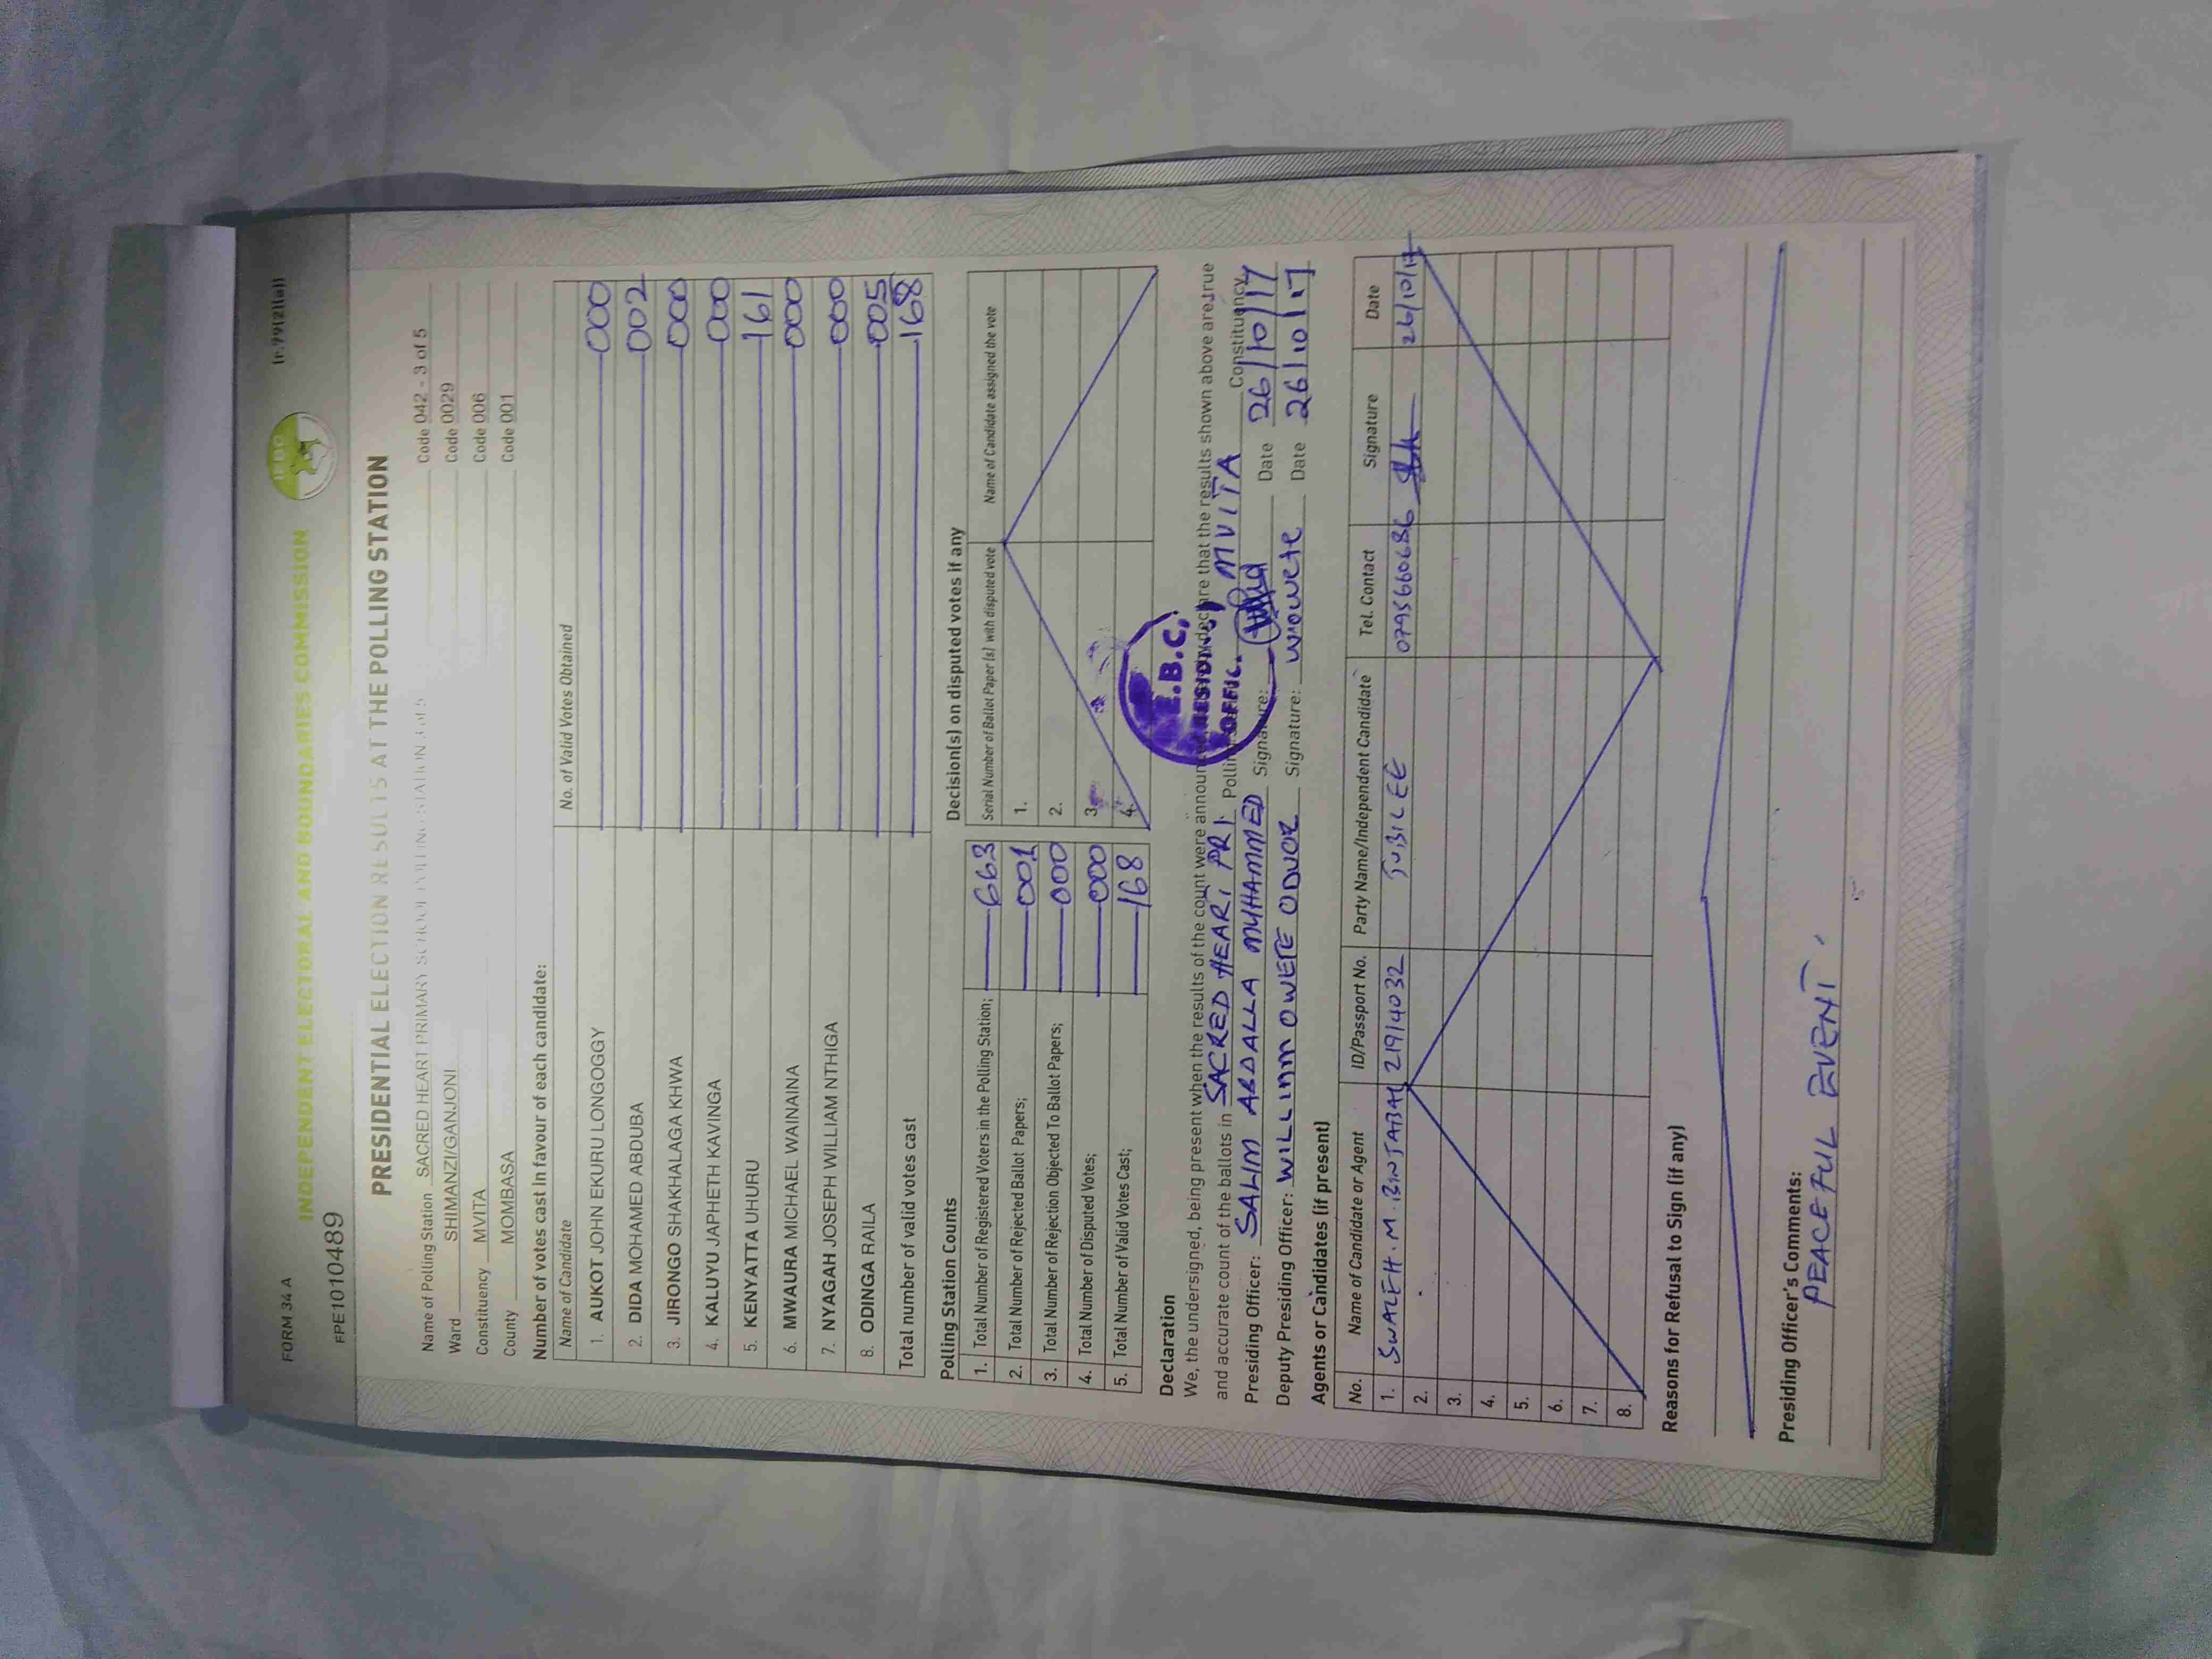 FORM 34 A
(r.79(2)(a))
INDEPENDENT ELECTORAL AND BOUNDARIES COMMISSION
IEBC
FPE1010489
PRESIDENTIAL ELECTION RESULTS AT THE POLLING STATION
Name of Polling Station SACRED HEART PRIMARY SCHOOL POLLING STATION 3 of 5 Code 042 - 3 of 5
Ward SHIMANZI/GANJONI Code 0029
Constituency MVITA Code 006
County MOMBASA Code 001
Number of votes cast in favour of each candidate:
Name of Candidate No. of Valid Votes Obtained
1. AUKOT JOHN EKURU LONGOGGY 000
2. DIDA MOHAMED ABDUBA 002
3. JIRONGO SHAKHALAGA KHWA 000
4. KALUYU JAPHETH KAVINGA 000
5. KENYATTA UHURU 161
6. MWAURA MICHAEL WAINAINA 000
7. NYAGAH JOSEPH WILLIAM NTHIGA 000
8. ODINGA RAILA 005
Total number of valid votes cast 168
Polling Station Counts
1. Total Number of Registered Voters in the Polling Station; 663
2. Total Number of Rejected Ballot Papers; 001
3. Total Number of Rejection Objected To Ballot Papers; 000
4. Total Number of Disputed Votes; 000
5. Total Number of Valid Votes Cast; 168
Decision(s) on disputed votes if any
Serial Number of Ballot Paper (s) with disputed vote Name of Candidate assigned the vote
1.
2.
3.
4.
Declaration
We, the undersigned, being present when the results of the count were announced, declare that the results shown above are true
and accurate count of the ballots in SACRED HEART PRI. Polling MVITA Constituency
E.B.C.
Presiding Officer: SALIM ABDALLA MUHAMMED Signature: Date 26/10/17
Deputy Presiding Officer: WILLIAM OWETE ODUOR Signature: wowete Date 26/10/17
Agents or Candidates (if present)
No. Name of Candidate or Agent ID/Passport No. Party Name/Independent Candidate Tel. Contact Signature Date
1. SWALEH.M.BINJABAL 21914032 JUBILEE 0795660686 26/10/17
2.
3.
4.
5.
6.
7.
8.
Reasons for Refusal to Sign (if any)
Presiding Officer's Comments:
PEACEFUL EVENT.